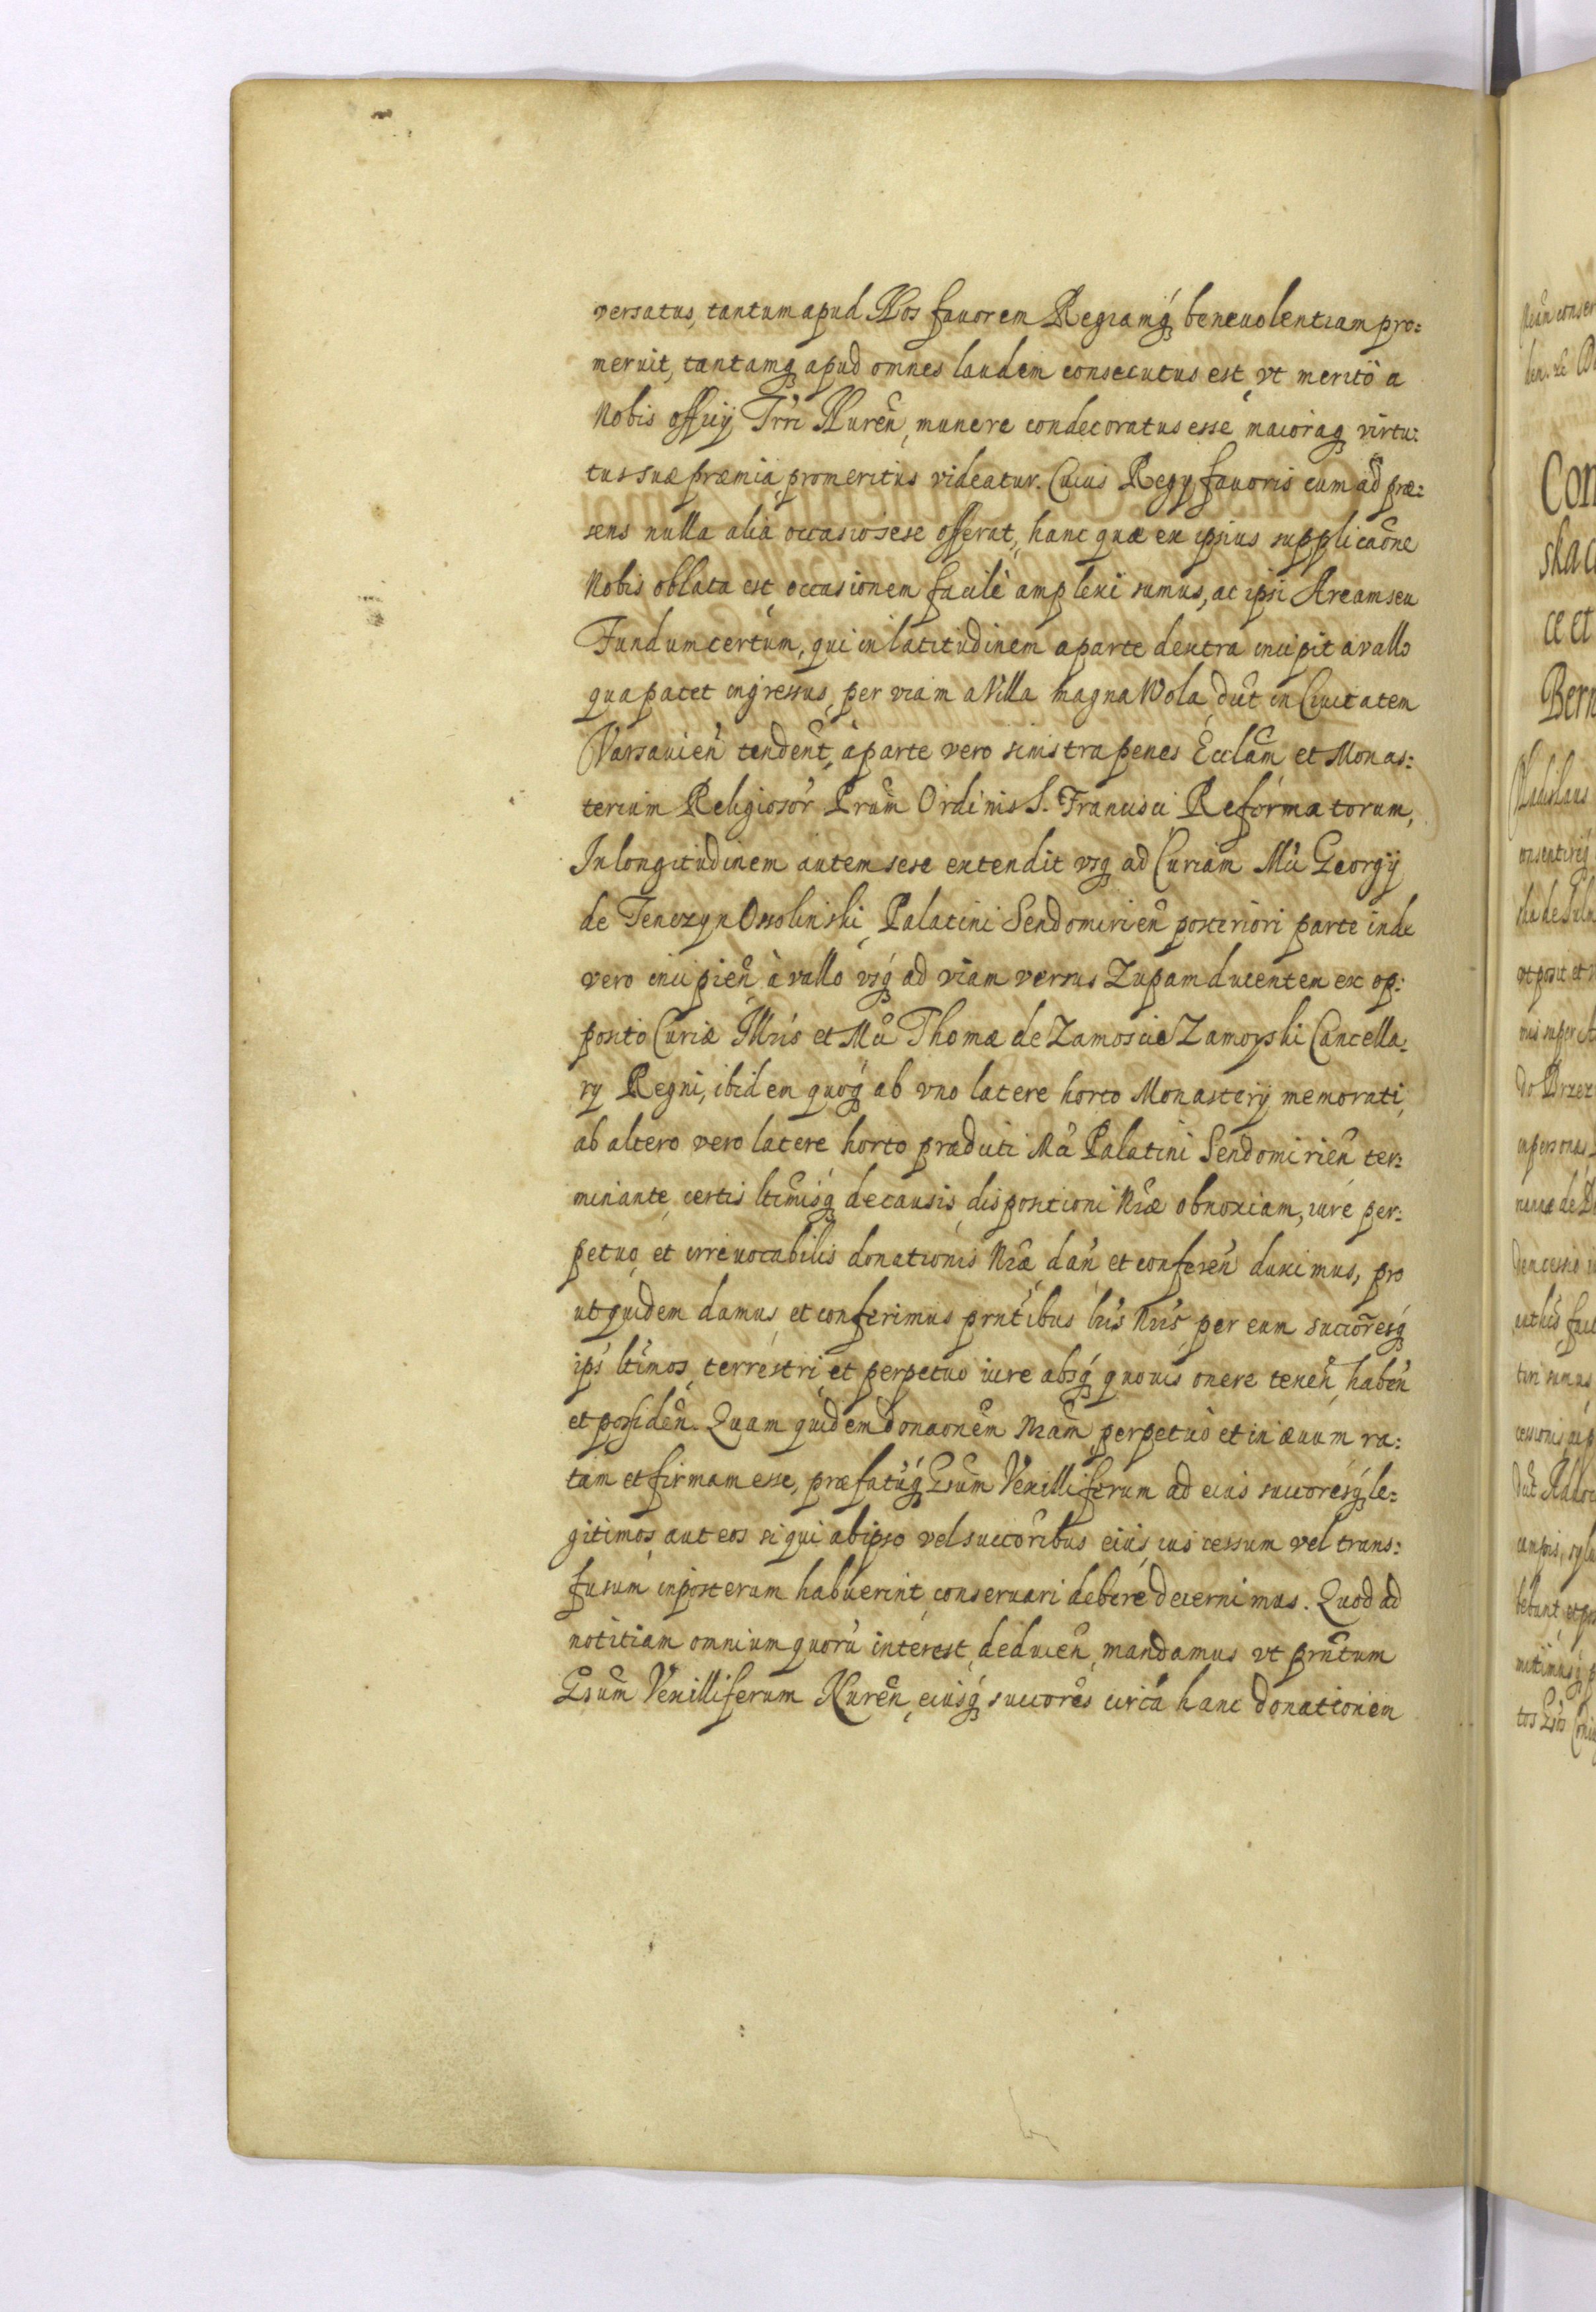 versatus, tantum apud Nos fauorem Regiamq́ꝫ beneuolentiam pro:
meruit, tantamqꝫ apud omnes laudem consecutus est, vt meritò a
Nobis officij Trri Nureñ, munere condecoratus esse maioraqꝫ virtu:
tus suæ præmia promeritus videatur. Cuius Regij fauoris cum ad præ:
sens nulla alia occasio sese offerat, hanc quæ ex ipsius supplicaõne
Nobis oblata est occasionem facilè amplexi sumus, ac ipsi Aream seu
Fundum certum, qui in latitudinem a parte dextra incipit a vallo
qua patet ingressus, per viam a Villa magna Wola dut in Ciuitatem
Varsauień tendent, à parte vero sinistra penes Eccłam et Monas:
terium Religiosor̃ Prum Ordinis S. Francisci Reformatorum,
In longitudinem autem sese extendit vsqꝫ ad Curiam Mći Georgij
de Tenczyn Ossolinski Palatini Sendomirień posteriori parte inde
vero incipień à vallo vsq́ꝫ ad viam versus Zupam ducentem ex op:
posito Curiæ Illris et Mći Thomæ de Zamoscie Zamoyski Cancella:
rij Regni, ibidem quoq́ꝫ ab vno latere horto Monasterij memorati,
ab altero vero latere horto prædicti Mći Palatini Sendomirień ter:
minante, certis ltimisq́ꝫ de causis dispositioni Nræ obnoxiam, iure per:
petuo et irreuocabilis donationis Nræ dań et confereń duximus, pro
ut quidem damus et conferimus prntibus lris Nris per eum succoresq́ꝫ
ips ltimos, terrestri et perpetuo iure absq́ꝫ quouis onere teneń, habeń
et possideń. Quam quidem donaonem Nram perpetuò et in æuum ra:
tam et firmam esse, præfatuq́ꝫ Gsum Vexilliferum ad eius succoresq́ꝫ le:
gitimos aut eos si qui ab ipso vel succoribus eius, ius cessum vel trans:
fusum in posterum habuerint, conseruari debere decernimus. Quod ad
notitiam omnium quoru interest, deducen, mandamus vt prntum
Gsum Vexilliferum Nureń, eiusq́ꝫ succores circa hanc donationem